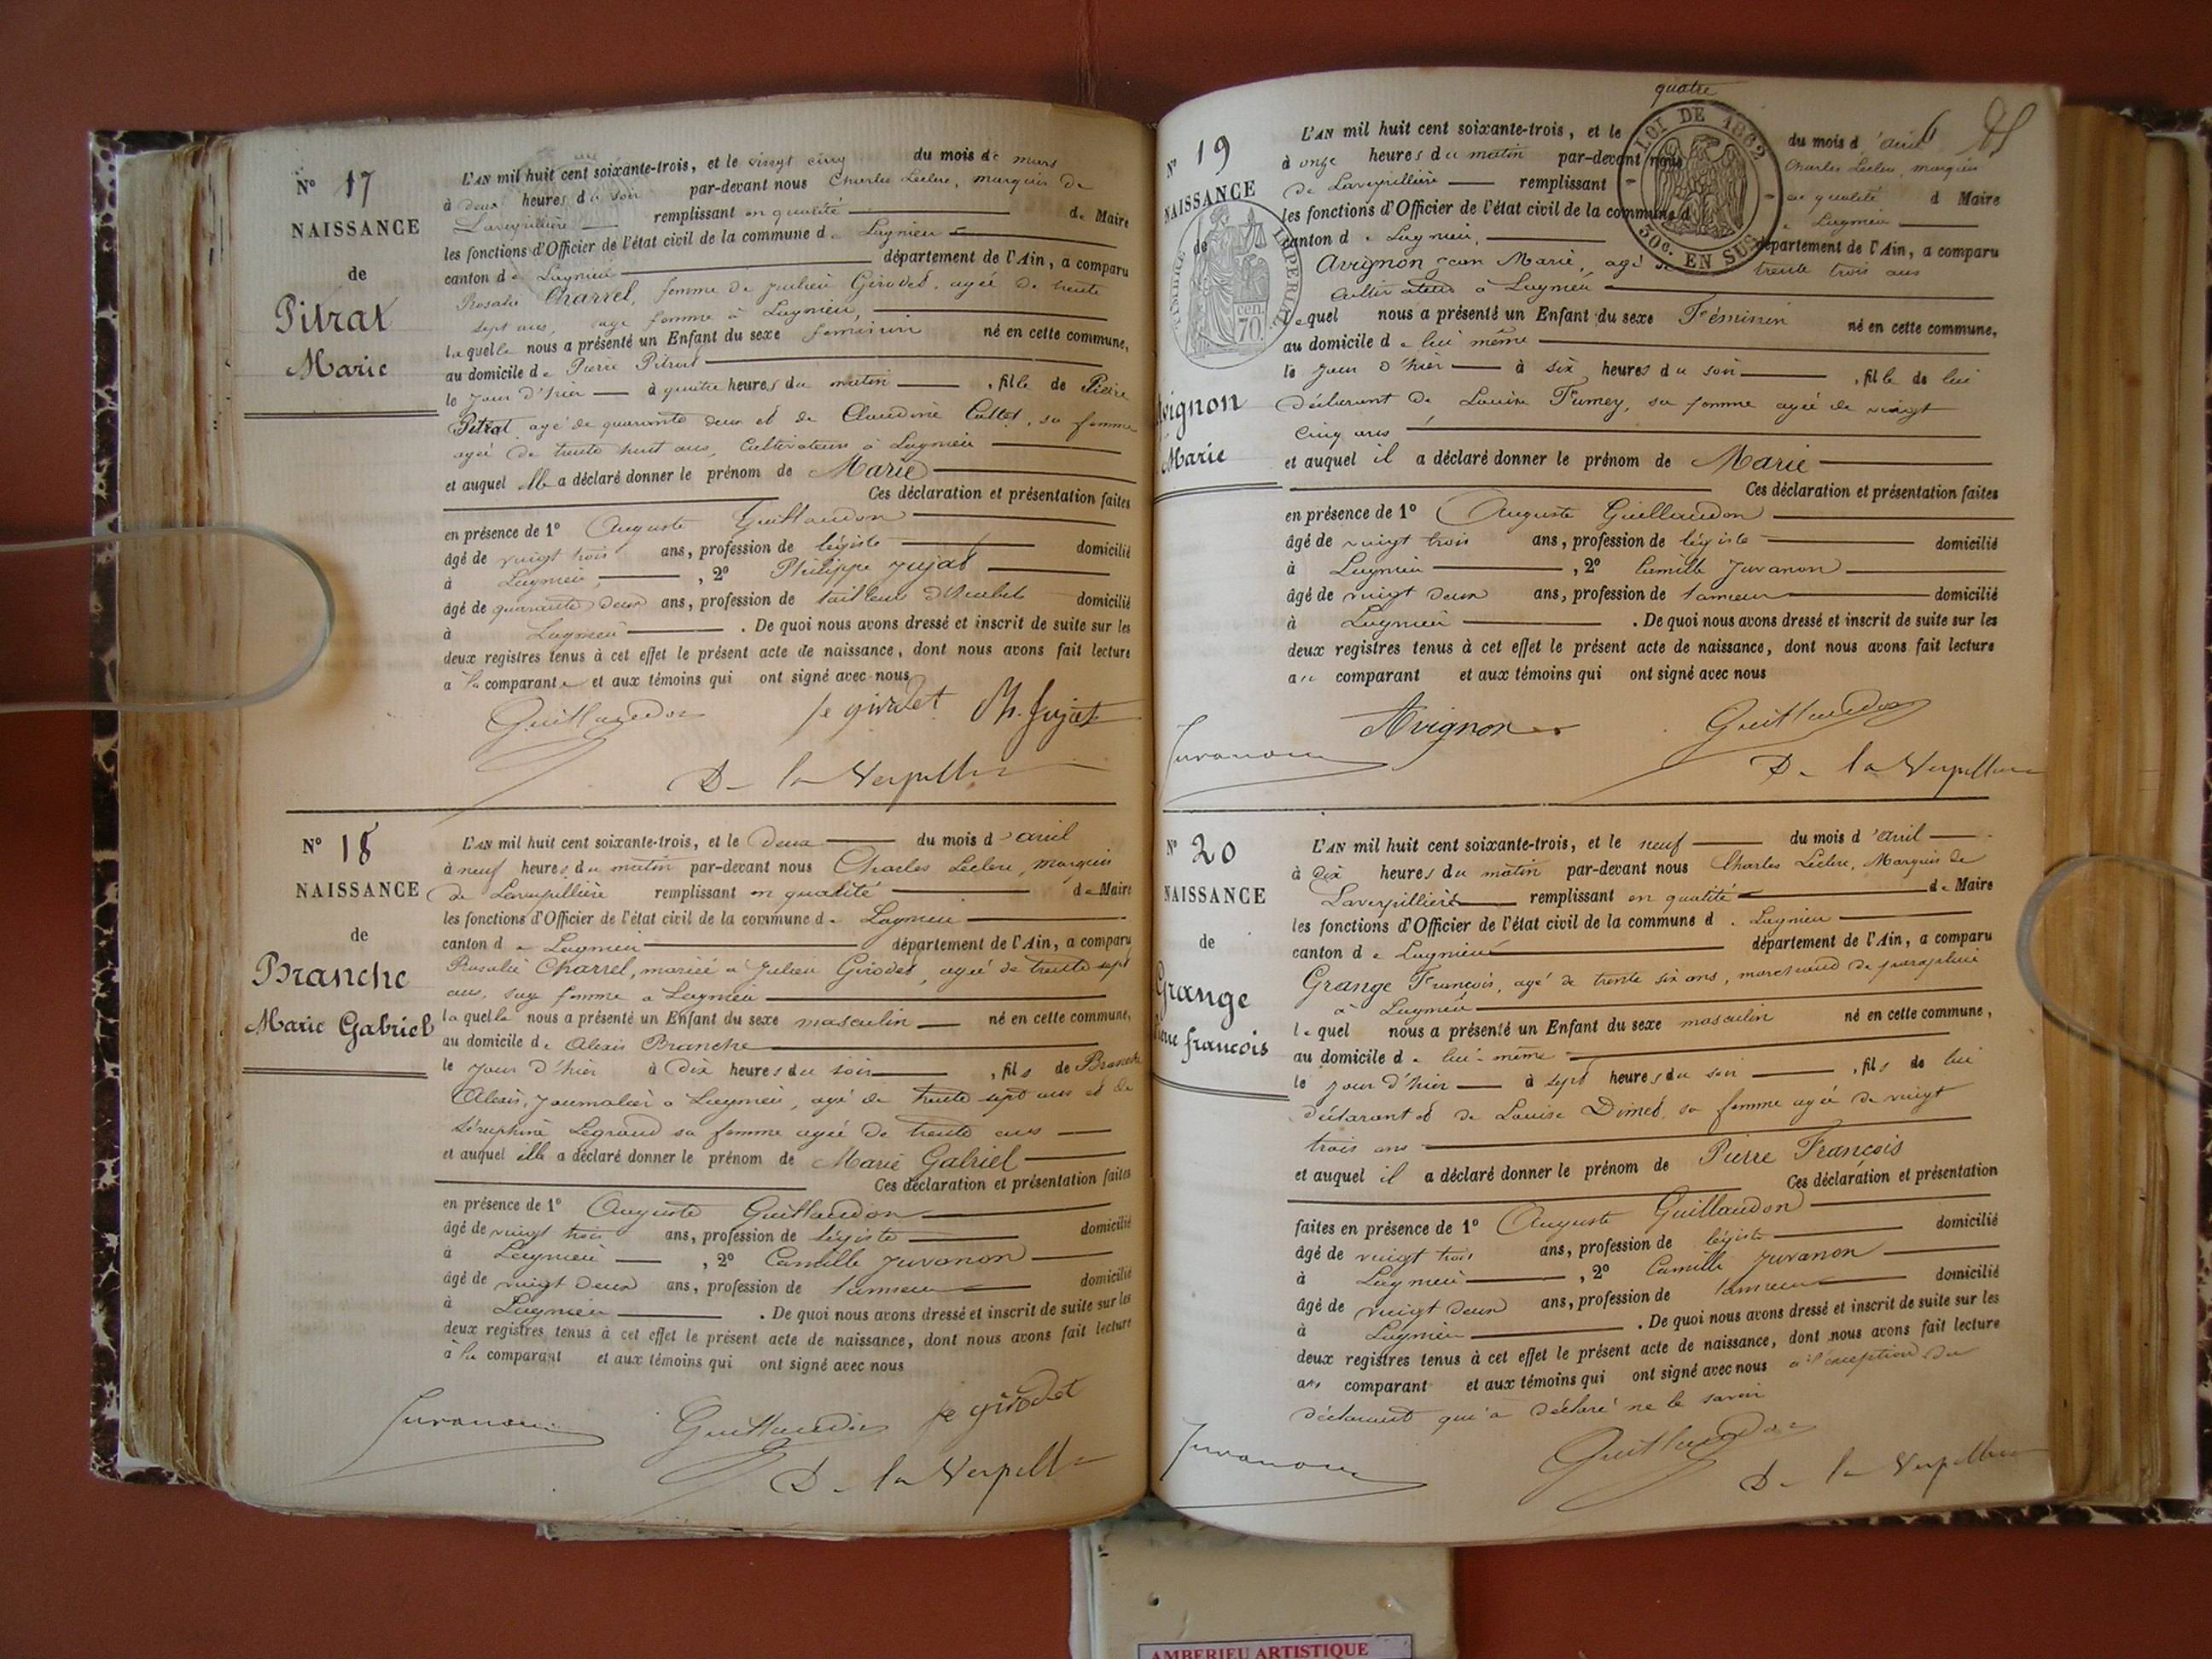 N° 17
NAISSANCE
de
Pitrat
Marie
L'AN mil huit cent soixante-trois, et le vingt cinq du mois de mars
à deux heures du soir par-devant nous Charles Leclerc, marquis de
Laverpillière remplissant en qualité de Maire
les fonctions d'Officier de l'état civil de la commune de Lagnieu
canton de Lagnieu département de l'Ain, a comparu
Rosalie Charrel, femme de Julien Girodet, agée de trente
sept ans, sage femme à Lagnieu,
laquelle nous a présenté un Enfant du sexe feminin né en cette commune,
au domicile de Pierre Pitrat
le jour d'hier à quatre heures du matin, fille de Pierre
Pitrat agé de quarante deux et de Claudine Collet, sa femme
agée de trente huit ans, Cultivateurs à Lagnieu
et auquel elle a déclaré donner le prénom de Marie
Ces déclaration et présentation faites
en présence de 1° Auguste Guillaudon
âgé de vingt trois ans, profession de légiste domicilié
à Lagnieu, 2° Philippe Jujat
âgé de quarante deux ans, profession de tailleur d'habits domicilié
à Lagnieu. De quoi nous avons dressé et inscrit de suite sur les
deux registres tenus à cet effet le présent acte de naissance, dont nous avons fait lecture
a la comparante et aux témoins qui ont signé avec nous
Guillaudon fe girodet Ph. Jujat
D. la Verpillière
N° 18
NAISSANCE
de
Branche
Marie Gabriel
L'AN mil huit cent soixante-trois, et le Deux du mois d'avril
à neuf heures du matin par-devant nous Charles Leclerc, marquis
de Laverpillière remplissant en qualité de Maire
les fonctions d'Officier de l'état civil de la commune de Lagnieu
canton de Lagnieu département de l'Ain, a comparu
Rosalie Charrel, mariée a Julien Girodet, agée de trente sept
ans, sage femme a Lagnieu
laquelle nous a présenté un Enfant du sexe masculin né en cette commune,
au domicile de Alexis Branche
le jour d'hier à Dix heures du soir, fils de Branche
Alexis, journalier à Lagnieu, agé de trente sept ans et de
Séraphine Legrand sa femme agée de trente ans
et auquel elle a déclaré donner le prénom de Marie Gabriel
Ces déclaration et présentation faites
en présence de 1° Auguste Guillaudon
âgé de vingt trois ans, profession de légiste domicilié
à Lagnieu, 2° Camille Juvanon
âgé de vingt deux ans, profession de tanneur domicilié
à Lagnieu. De quoi nous avons dressé et inscrit de suite sur les
deux registres tenus à cet effet le présent acte de naissance, dont nous avons fait lecture
à la comparant et aux témoins qui ont signé avec nous
Juvanon Guillaudon fe girodet
D. la Verpillière
N° 19
NAISSANCE
de
Avignon
Marie
TIMBRE IMPERIAL
70 cen.
LOI DE 1862
50c. EN SUS
6
quatre
L'AN mil huit cent soixante-trois, et le du mois d'avril
à onze heures du matin par-devant nous Charles Leclerc, marquis
de Laverpillière remplissant en qualité d Maire
les fonctions d'Officier de l'état civil de la commune de Lagnieu
canton de Lagnieu, département de l'Ain, a comparu
Avignon Jean Marie, agé de trente trois ans
Cultivateur à Lagnieu
lequel nous a présenté un Enfant du sexe Féminin né en cette commune,
au domicile de lui même
le jour d'hier à six heures du soir, fille de lui
déclarant de Louise Fumey, sa femme agée de vingt
cinq ans
et auquel il a déclaré donner le prénom de Marie
Ces déclaration et présentation faites
en présence de 1° Auguste Guillaudon
âgé de vingt trois ans, profession de légiste domicilié
à Lagnieu, 2° Camille Juvanon
âgé de vingt deux ans, profession de tanneur domicilié
à Lagnieu. De quoi nous avons dressé et inscrit de suite sur les
deux registres tenus à cet effet le présent acte de naissance, dont nous avons fait lecture
au comparant et aux témoins qui ont signé avec nous
Juvanon Avignon Guillaudon
D. la Verpillière
N° 20
NAISSANCE
de
Grange
Pierre françois
L'AN mil huit cent soixante-trois, et le neuf du mois d'avril
à Dix heures du matin par-devant nous Charles Leclerc, Marquis de
Laverpillière remplissant en qualité de Maire
les fonctions d'Officier de l'état civil de la commune d. Lagnieu
canton de Lagnieu département de l'Ain, a comparu
Grange François, agé de trente six ans, marchand de parapluie
à Lagnieu
lequel nous a présenté un Enfant du sexe masculin né en cette commune,
au domicile de lui-même
le jour d'hier à sept heures du soir, fils de lui
déclarant et de Louise Dimet, sa femme agée de vingt
trois ans
et auquel il a déclaré donner le prénom de Pierre François
Ces déclaration et présentation
faites en présence de 1° Auguste Guillaudon
âgé de vingt trois ans, profession de légiste domicilié
à Lagnieu, 2° Camille Juvanon
âgé de vingt deux ans, profession de tanneur domicilié
à Lagnieu. De quoi nous avons dressé et inscrit de suite sur les
deux registres tenus à cet effet le présent acte de naissance, dont nous avons fait lecture
au comparant et aux témoins qui ont signé avec nous a l'exception du
déclarant qui a déclaré ne le savoir
Juvanon Guillaudon D. la Verpillière
AMBERIEU ARTISTIQUE